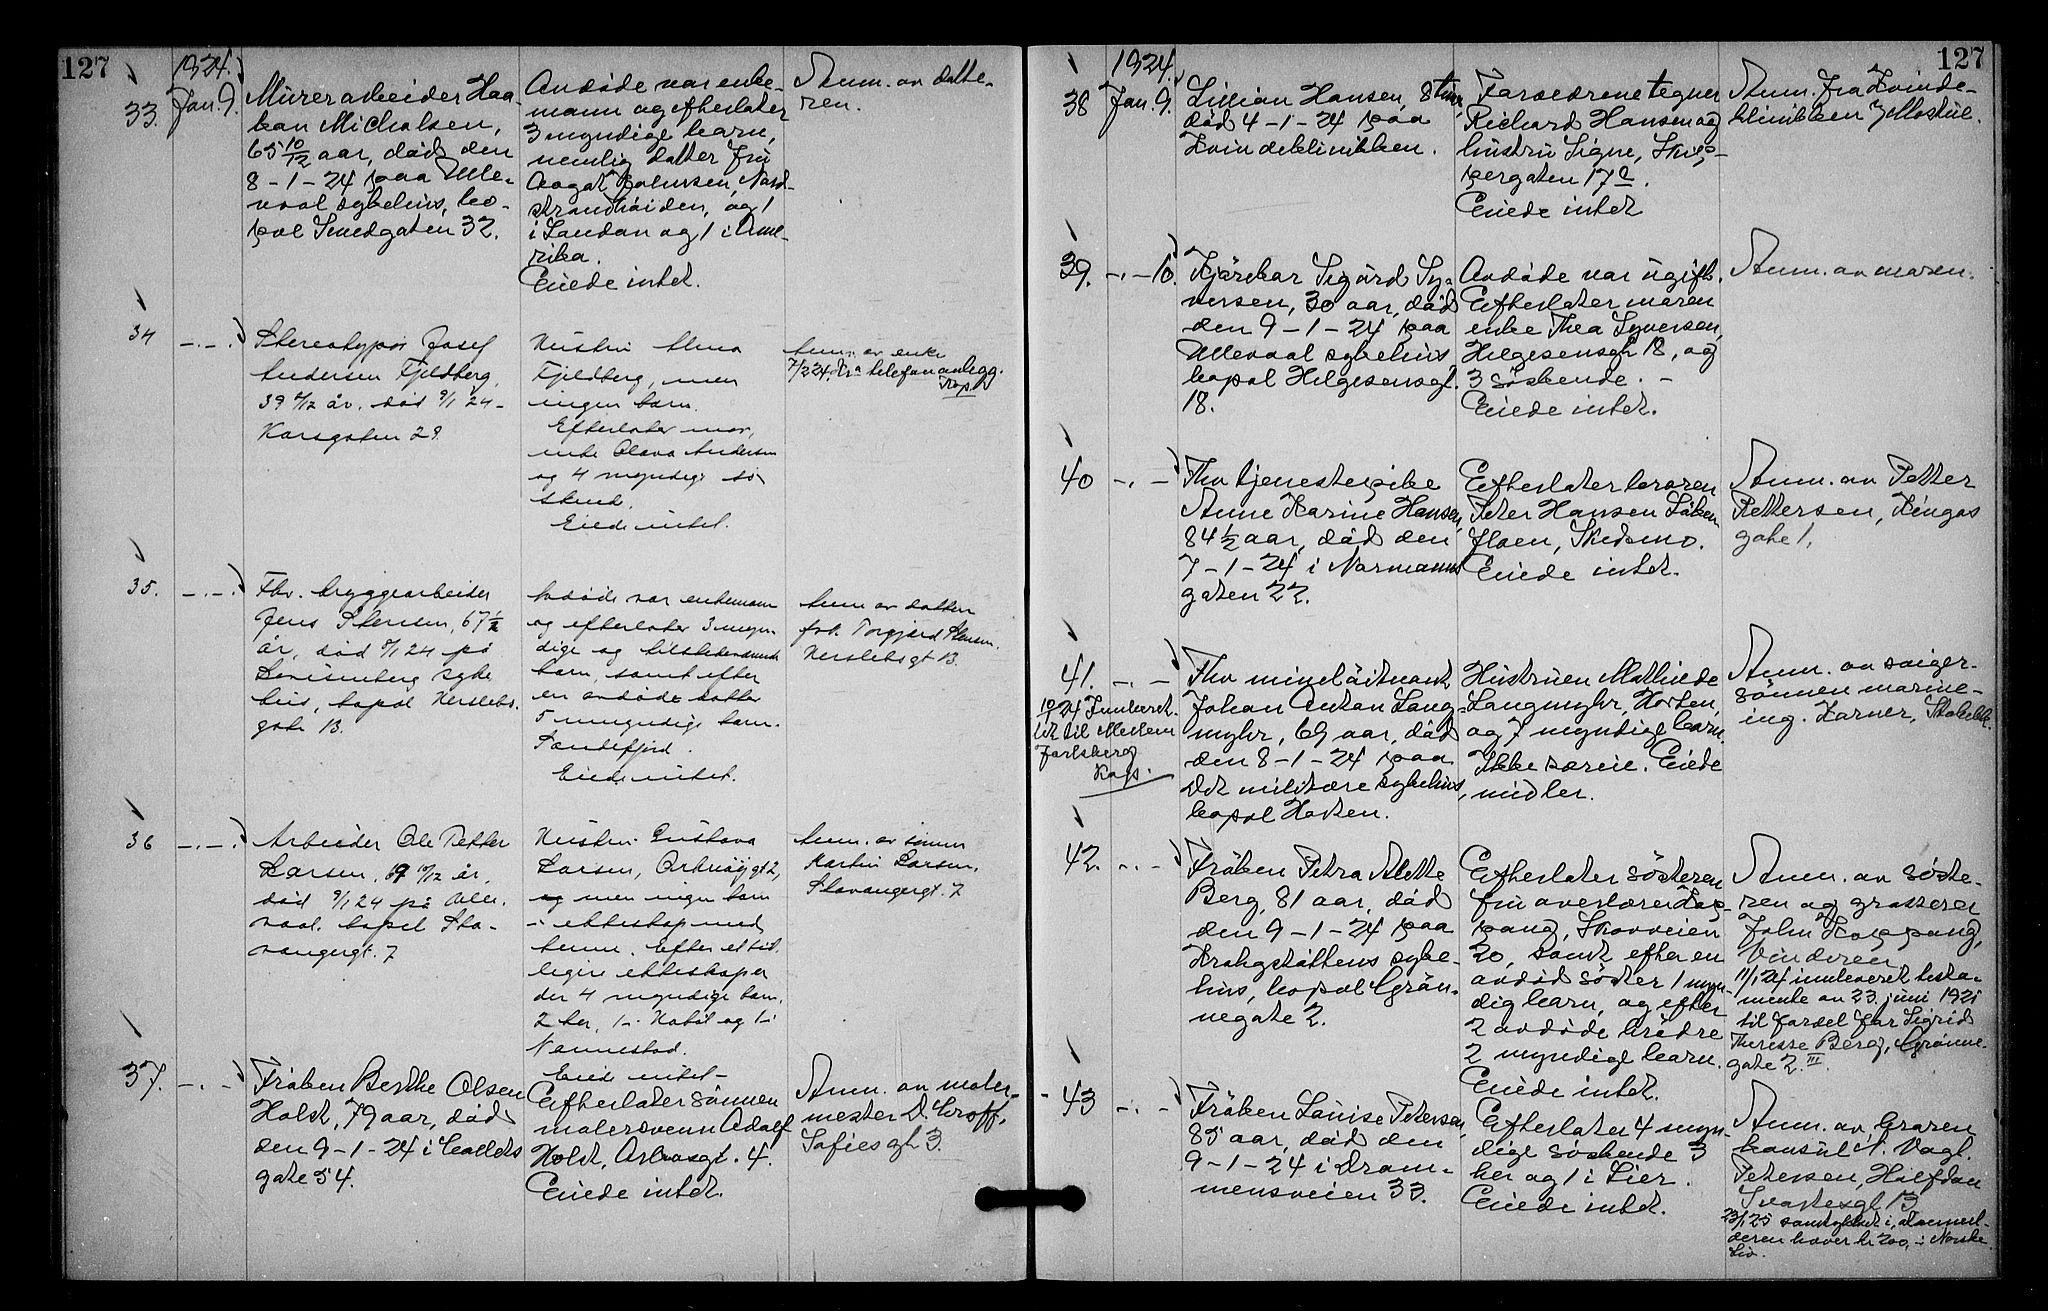 127
1924.
33.
Jan. 9.
Murerarbeider Haa-
kon Michalsen,
65 10/12 aar, död den
8-1-24 paa Ulle-
vaal sykehus, bo-
pæl Smedgaten 32.
Avdöde var enke-
mann og efterlater
3 myndige barn,
nemlig datter fru
Aagot Johnsen, Nord-
strandhöiden, og 1
i London og 1 i Ame-
rika.
Eiede intet.
Anm. av datte-
ren.
34
-.-.
Stereotypör Josef
Andersen Fjeldberg,
39 år, död 9/1 24
Korsgaten 29
Hustru Alma
Fjeldberg, men
ingen barn.
Efterlater mor,
enke Olava Andersen
og 4 myndige sö-
skend.
Eiede intet.
Anm. av enke
7/2 24. telefonanlegg.
35.
-.-.
Fhv. bryggearbeider
Jens Stensen, 67 1/2
år, död 24 på
Lovisenberg syke
hus, bopæl Herslebs.
gate 13.
Avdöde var enkemann
og efterlater 3 myn-
dige og tilstedeværende
barn, samt efter
en avdöde datter
5 umyndige barn.
Sandefjord.
Eiede intet.
Anm av datter
frk. Torgjerd Stensen.
Herslebsgt 13.
36
-.-.
Arbeider Ole Petter
Larsen, 69 10/12 år,
död 9/1 24 på Ulle.
vaal. bopæl Sta-
vangergt. 7
Hustru Gustava
Larsen, 2,
og men ingen barn
i ekteskap med
henne. Efter et tid.
ligere ekteskap er
der 4 myndige barn.
2 her, 1 i Hobøl og 1 i
Nannestad.
Eiede intet -
Anm. av sönnen
Martin Larsen,
Stavangergt. 7
37.
-.-
Fröken Berthe Olsen
Holdt, 79 aar, död
den 9-1-24 i Colletts
gate 54.
Efterlater sönnen
malersvenn Adolf
Holdt, 4.
Eiede intet.
Anm. av maler-
mester D. Groff,
Sofies gt 3.
127
1924.
38
Jan. 9.
Lillian Hansen, 8 timer,
död 4-1-24 paa
Kvindeklinikken.
Foreldrene tegner
Richard Hansen og
hustru Signe, Skip-
pergaten 17 a.
Eiede intet
Anm. fra Kvinde-
klinikken
39.
-.-10.
Kjörekar Sigurd Sy-
versen, 30 aar, död
den 9-1-24 paa
Ullevaal sykehus
bopæl Helgesensgt.
18.
Avdöde var ugift.
Efterlater moren
enke Thea Syversen,
Helgesensgt 18, og
3 söskende. -
Eiede intet.
Anm. av moren.
40
-.-
Fhv tjenestepike
Anne Karine Hansen,
84 1/2 aar, död den
7-1-24 i Normanns
gaten 22.
Efterlater broren
Peter Hansen Löken
floen, Skedsmo.
Eiede intet.
Anm. av Petter
Pettersen, Kingos
gate 1.
41.
-.-
10/1 24 Innberet.
ut til Mellem
Jarlsberg
Kaps.
Fhv mineløitnant
Johan Anton Lang-
myhr, 69 aar, död
den 8-1-24 paa
Det militære sykehus,
bopæl Horten.
Hustruen Mathilde
Langmyhr, Horten,
og 7 myndige barn.
Ikke særeie. Eiede
midler.
Anm. av sviger-
sönnen marine-
ing. Karner,
42.
-.-
Fröken Petra Alette
Berg, 81 aar, död
den 9-1-24 paa
Krohgstöttens syke-
hus, bopæl Grön-
negate 2.
Efterlater sösteren
fru overlærer Kop-
pang, Skovveien
20, samt efter en
avdöd söster 1 myn-
dig barn, og efter
2 avdöde brödre
2 myndige barn.
Eiede intet.
Anm. av söste-
ren og grosserer
John Koppang,
Vinderen
11/1 24 innleveret testa-
mente av 23. juni 1921
til fordel for Sigrid
Therese Berg, Grönne-
gate 2 III.
43
-.-
Fröken Louise Petersen,
85 aar, död den
9-1-24 i Dram-
mensveien 33.
Efterlater 4 myn-
dige söskende 3
her og 1 i Lier.
Eiede intet.
Anm. av broren
konsul N. Vogt.
Petersen, Halfdan
Svartesgt 13.
23/1 25
deren hæver kr 200, i Norske
Liv.